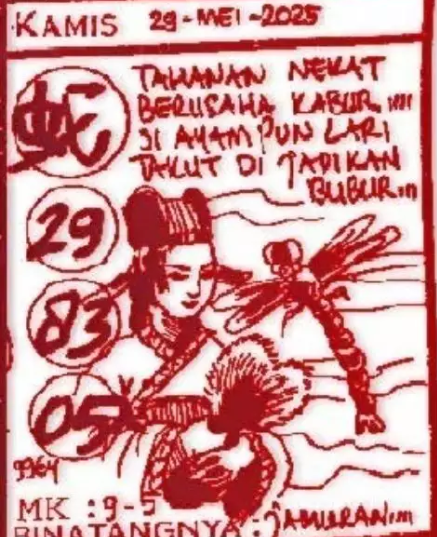 KAMIS 29-MEI-2025
蛇
TAHANAN NEKAT
BERUSAHA KABUR
SI AYAM PUN LARI
TAKUT DI JADIKAN
BUBUR
29
83
05
9964
MK : 9-5
BINATANGNYA :